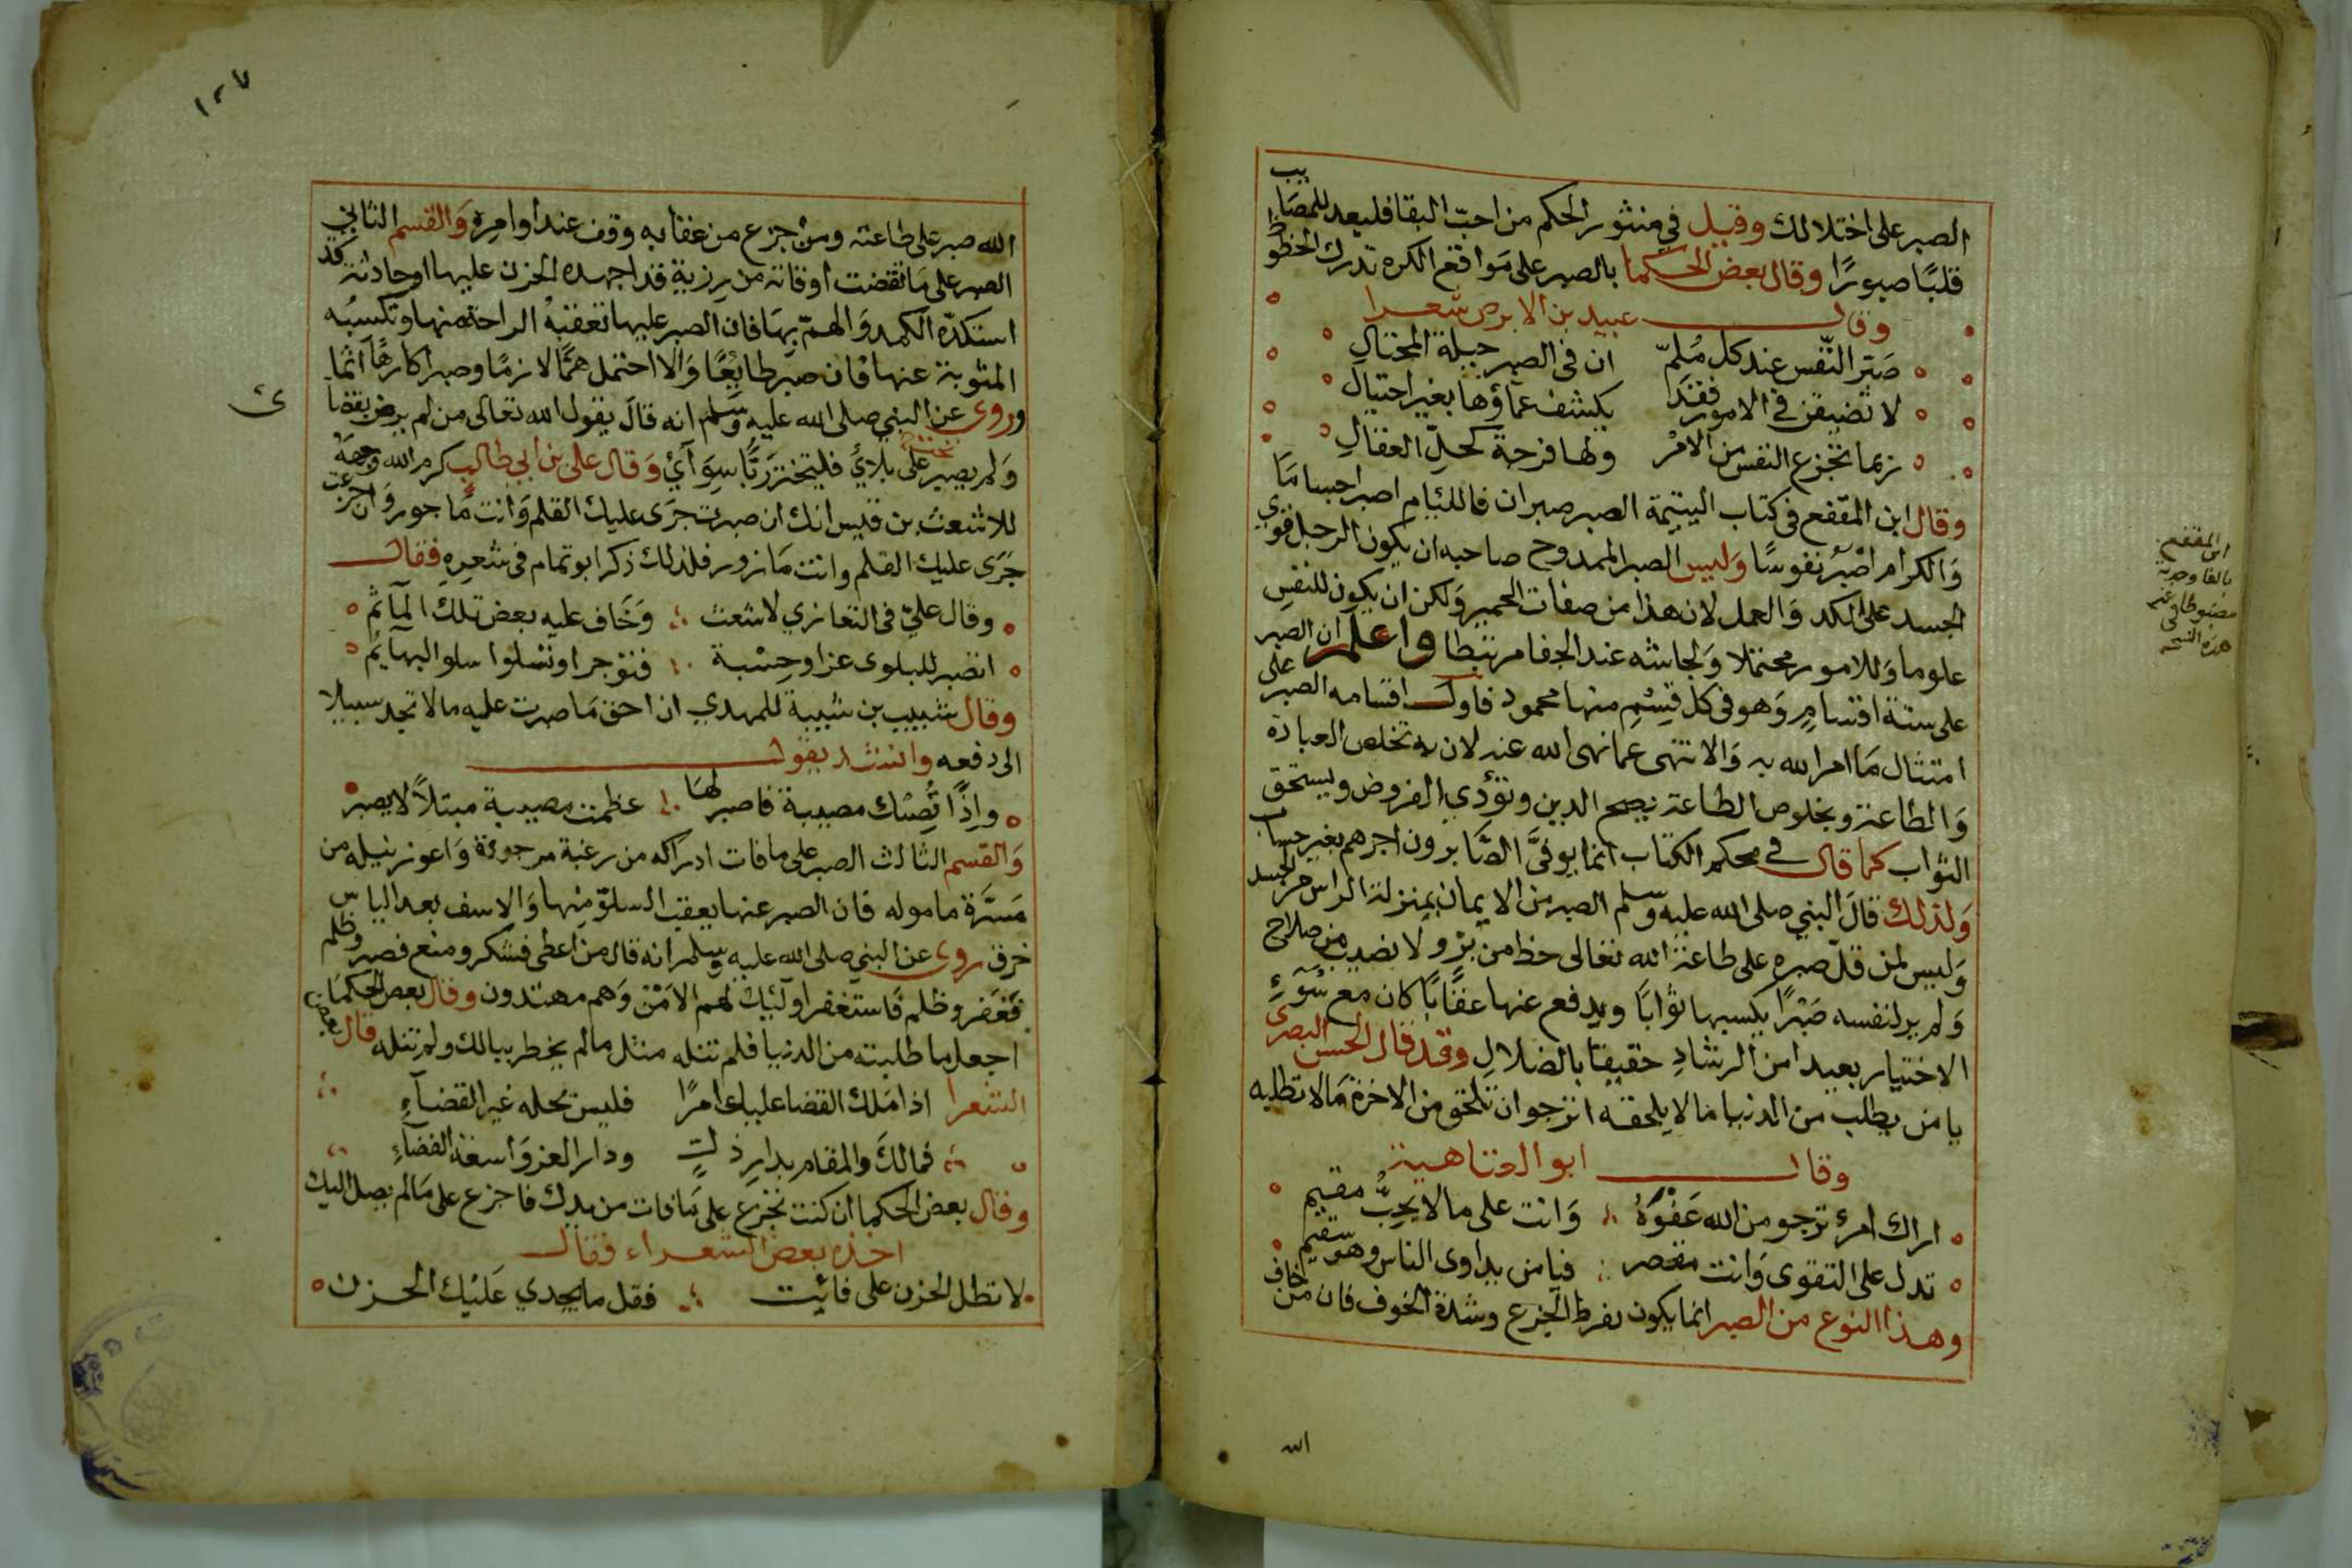 الصبر على اختلالك وقيل في منثور الحكم من احبّ البقا فليعد للمصايب
قلبًا صبورًا وقال بعض الحكما بالصبر على مَواقع الكره تدرك الحظوظ
وقال عبيد بن الابرص شعرا
صَبّر النّفس عند كل مُلمّ ان في الصبر حيلة المحتالِ
لا تضيقن في الامور فقد يكشف غماؤها بغير احتيال
ربما تجزع النفس من الامْر ولها فرجة كحلّ العقالِ
وقال ابن المقّفع في كتاب اليتيمة الصبر صبران فاللئام اصبر اجسامًا
وَالكرام اصْبرُ نفوسًا وَليس الصبر الممدوح صاحبه ان يكون الرجل قوي
الجسد على الكد وَالعمل لان هذا من صفات الحمير وَلكن ان يكون للنفسِ
علوما وَللامور محتملا وَلجاشه عند الحفا مرتبطا واعلم ان الصبر
على ستة اقسامٍ وَهو في كل قِسْمٍ منها محمود فاول اقسامه الصبر على
امتثال مَا امر الله به وَالانتهى عما نهى الله عنه لان به تخلص العبادة
وَالطاعة وبخلوص الطاعة يصح الدين وتؤدي الفروض ويستحق
الثواب كما قال في محكم الكتاب انما يوفىَّ الصَّابرون اجرهم بغير حساب
وَلذلك قالَ النبي صلى الله عليه وسلم الصبر من الايمان بمنزلة الراس من الجسد
وَليس لمن قلّ صبره على طاعة الله تعالى حظ من برّ ولا نصيب من صلاح
وَلم ير لنفسه صَبْرًا يكسبها ثوابًا ويدفع عنها عقابًا كان مع سُوءِ
الاختيار بعيدا من الرشادِ حقيقا بالضلالِ وقد قال الحسن البصري
يا من يطلب من الدنيا ما لا يلحقه اترجو ان تلحق من الاخرة مَا لا تطلبه
وقال ابو العتاهية
اراك امرء ترجو من الله عَفْوَهُ وَانت على ما لا يحِبُّ مقيم
تدل على التقوى وَانت مقصر فيا من يداوى الناس وهو سقيم
وهذا النوع من الصبر انما يكون بفرط الجزع وشدة الخوف فان من خاف
الله
ابن المقفع
بالفا وجدته
مضبوطا عنه
في
هذه النسخه
١٠٧
الله صبر على طاعته ومن جزع من عقابه وقف عند اوامره وَالقسم الثاني
الصبر على مَا تقضت اوقاته من رزية قد اجهده الحزن عليها او حادثة قد
استكدّه الكمد وَالهمّ بهَا فان الصبر عليها تعقبهُ الراحة منها وتكسبُه
المثوبة عنها فان صبَر طايعًا وَالا احتمل همًّا لازمًا وصبرا كارهًا اثمًا
وروى عن النبي صلى الله عليه وَسَلم انه قالَ يقول الله تعالى من لم يرض بقضا
وَلم يصبر على بلاي فليتخذ رَبًّا سِوَآيْ وَقال على بن ابي طالب كرم الله وجهه
للاشعث بن قيس انك ان صبرت جَرَى عليك القلم وَانت مَاجور وَان جزعت
جَرَى عليك القلم وانت مَازور فلذلك ذكر ابو تمام في شعرِهِ فقال
وقال عليّ في التعازي لاشعث وَخَاف عليه بعض تلك المآثم
اتصبر للبلوى عزا وحِسْبة فتوجر او تسلوا سلو البهآيم
وقال شبيب بن شيبة للمهدي ان احق مَا صبرت عليه ما لا تجد سبيلا
الى دفعه وانشد يقول
واِذًا تُصِبْك مصيبة فاصبر لهَا عظمت مصيبة مبتلاً لا يصبرُ
وَالقسم الثالث الصبر على ما فات ادراكه من رغبة مرجوة وَاعوز نيله من
مَسَّرة ماموله فان الصبر عنها يعقب السلوّ مِنْها وَالاسف بعد الياس
خرق روى عن النبي صلى الله عليه وَسلم انه قال من اعطى فشكر ومنع فصبر وظلم
فَغفر وظلم فَاستغفر اوليئك لهم الاَمْنُ وَهم مهتدون وقال بعض الحكمَا
اجعل ما طلبته من الدنيا فلم تنله مثل ما لم يخطر ببالك ولم تنله قال بعض
الشعرا اذا مَلك القضا عليك امرًا فليس يحله غير القضآءِ
فمالَك والمقام بدارِ ذلٍ ودار العز وَاسعة الفضاءِ
وقال بعض الحكما ان كنت تجزع على مَا فات من يدك فاجزع على مَا لم يصل اليك
اخذه بعض الشعراء فقال
لا تطل الحزن على فائِت فقل ما يجدي عَليْك الحزن